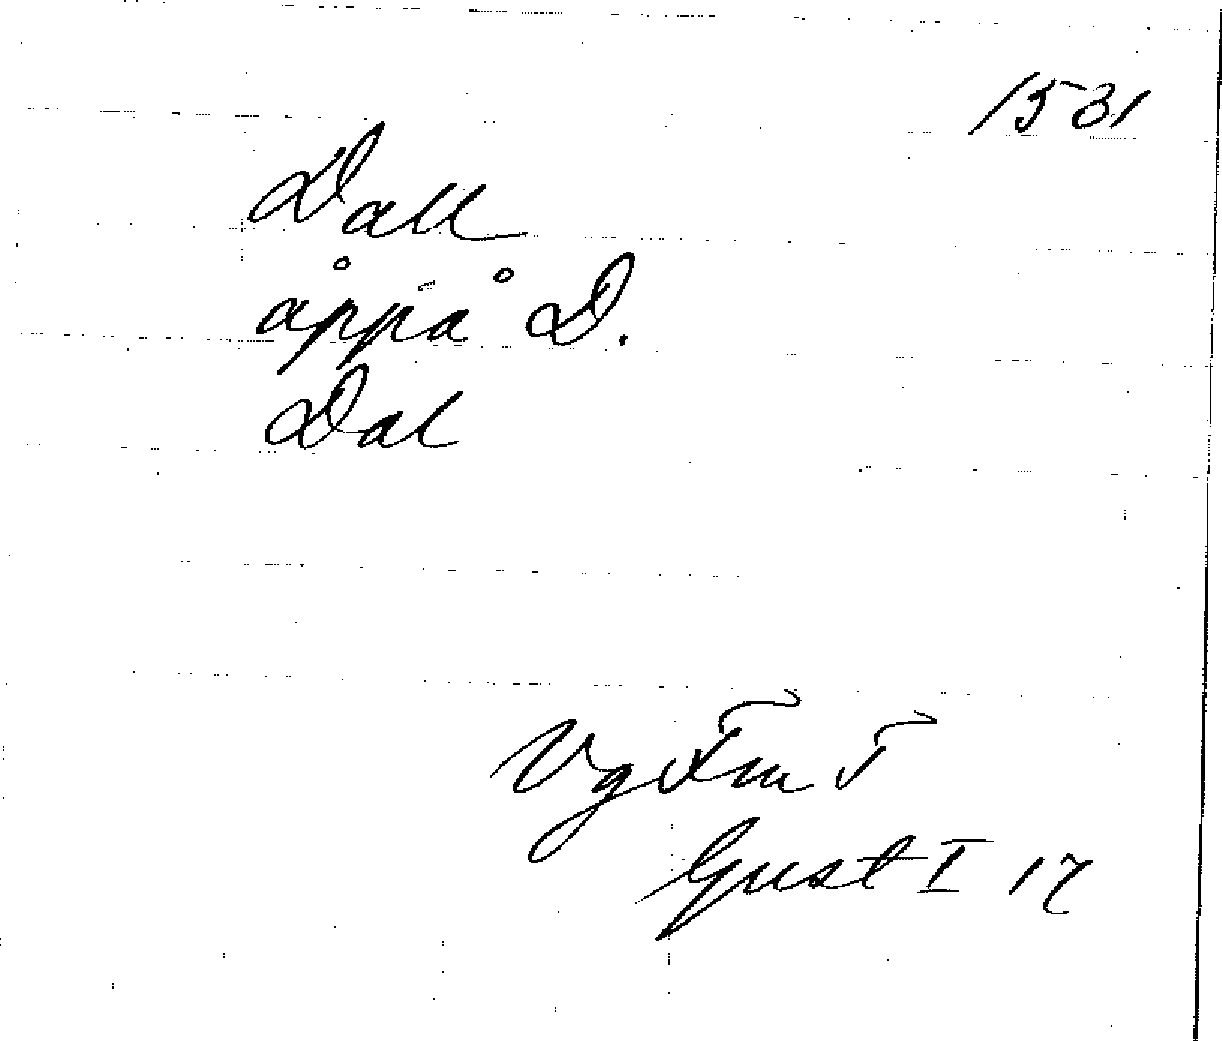 1531
Dall
åppå D.
Dal
Vg Fm F
Gust I 17